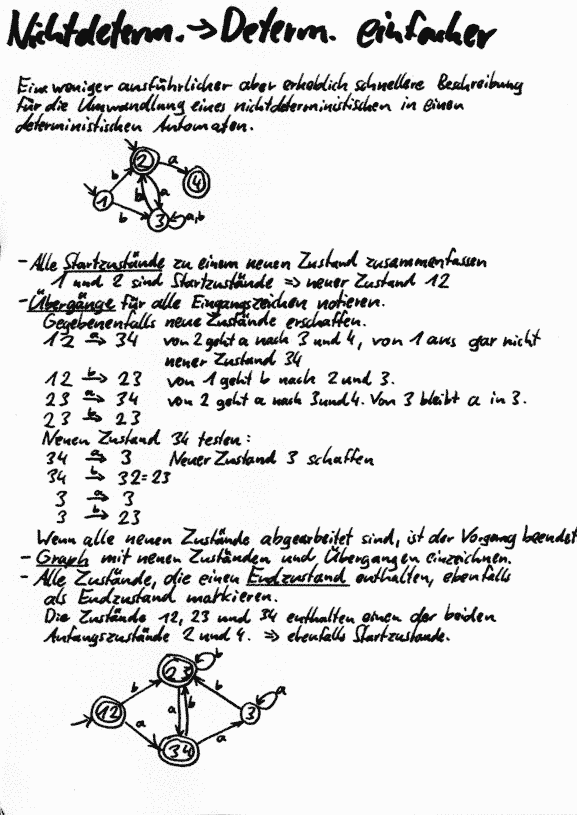 Nichtdeterm. → Determ. einfacher
Eine weniger ausführlicher aber erheblich schnellere Beschreibung
für die Umwandlung eines nichtdeterministischen in einen
deterministischen Automaten.
2 a
b 4
1 b a
b 3 a,b
- Alle Startzustände zu einem neuen Zustand zusammenfassen
1 und 2 sind Startzustände => neuer Zustand 12
- Übergänge für alle Eingangszeichen notieren.
Gegebenenfalls neue Zustände erschaffen.
12 a→ 34 von 2 geht a nach 3 und 4, von 1 aus gar nicht
neuer Zustand 34
12 b→ 23 von 1 geht b nach 2 und 3.
23 a→ 34 von 2 geht a nach 3 und 4. Von 3 bleibt a in 3.
23 b→ 23
Neuen Zustand 34 testen:
34 a→ 3 Neuer Zustand 3 schaffen
34 b→ 32=23
3 a→ 3
3 b→ 23
Wenn alle neuen Zustände abgearbeitet sind, ist der Vorgang beendet
- Graph mit neuen Zuständen und Übergangen einzeichnen.
- Alle Zustände, die einen Endzustand enthalten, ebenfalls
als Endzustand markieren.
Die Zustände 12, 23 und 34 enthalten einen der beiden
Anfangszustände 2 und 4. => ebenfalls Startzustande.
23 b
b b a
12 a b 3
a a
34